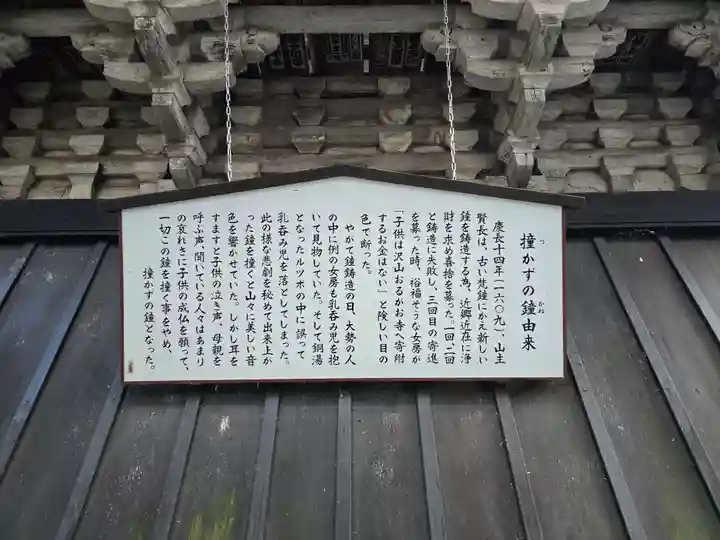 撞かずの鐘由来
慶長十四年(一六〇九)、山主
賢長は、古い梵鐘にかえ新しい
鐘を鋳造する為、近郷近在に浄
財を求め喜捨を募った。一回、二回
と鋳造に失敗し、三回目の寄進
を募った時、裕福そうな女房が
「子供は沢山おるがお寺へ寄附
するお金はない」と険しい目の
色で断った。
やがて鐘鋳造の日、大勢の人
の中に例の女房も乳呑み児を抱
いて見物していた。そして銅湯
となったルツボの中に誤って
乳呑み児を落としてしまった。
此の様な悲劇を秘めて出来上が
った鐘を撞くと山々に美しい音
色を響かせていた。しかし耳を
すますと子供の泣き声、母親を
呼ぶ声、聞いている人々はあまり
の哀れさに子供の成仏を願って、
一切この鐘を撞く事をやめ、
撞かずの鐘となった。